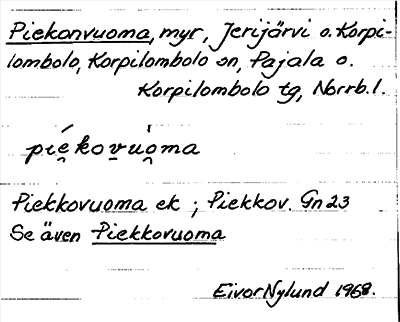 Piekonvuoma, myr, Jerijärvi o. Korpi-
lombolo, Korpilombolo sn, Pajala o.
Korpilombolo tg, Norrb.l.
pie̯kovu̯o̯ma
Piekkovuoma ek ; Piekkov. Gn23
Se även Piekkovuoma
Eivor Nylund 1968.